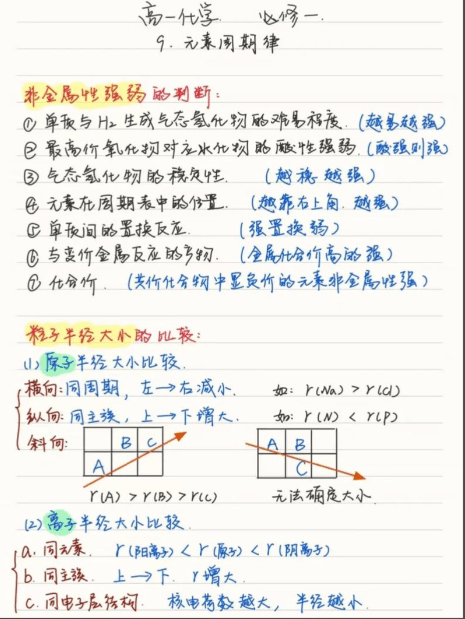 高一化学 必修一.
9. 元素周期律
非金属性强弱的判断:
① 单质与H₂生成气态氢化物的难易程度. (越易越强)
② 最高价氧化物对应水化物的酸性强弱. (酸强则强)
③ 气态氢化物的稳定性. (越稳越强)
④ 元素在周期表中的位置. (越靠右上角. 越强)
⑤ 单质间的置换反应. (强置换弱)
⑥ 与变价金属反应的产物. (金属化合价高的强)
⑦ 化合价. (共价化合物中显负价的元素非金属性强)
粒子半径大小的比较:
(1) 原子半径大小比较.
横向: 同周期, 左→右减小. 如: r(Na) > r(Cl)
纵向: 同主族, 上→下增大. 如: r(N) < r(P)
斜向: B C A A B C
r(A) > r(B) > r(C) 无法确定大小.
(2) 离子半径大小比较.
a. 同元素. r(阳离子) < r(原子) < r(阴离子)
b. 同主族. 上→下. r增大.
c. 同电子层结构. 核电荷数越大, 半径越小.